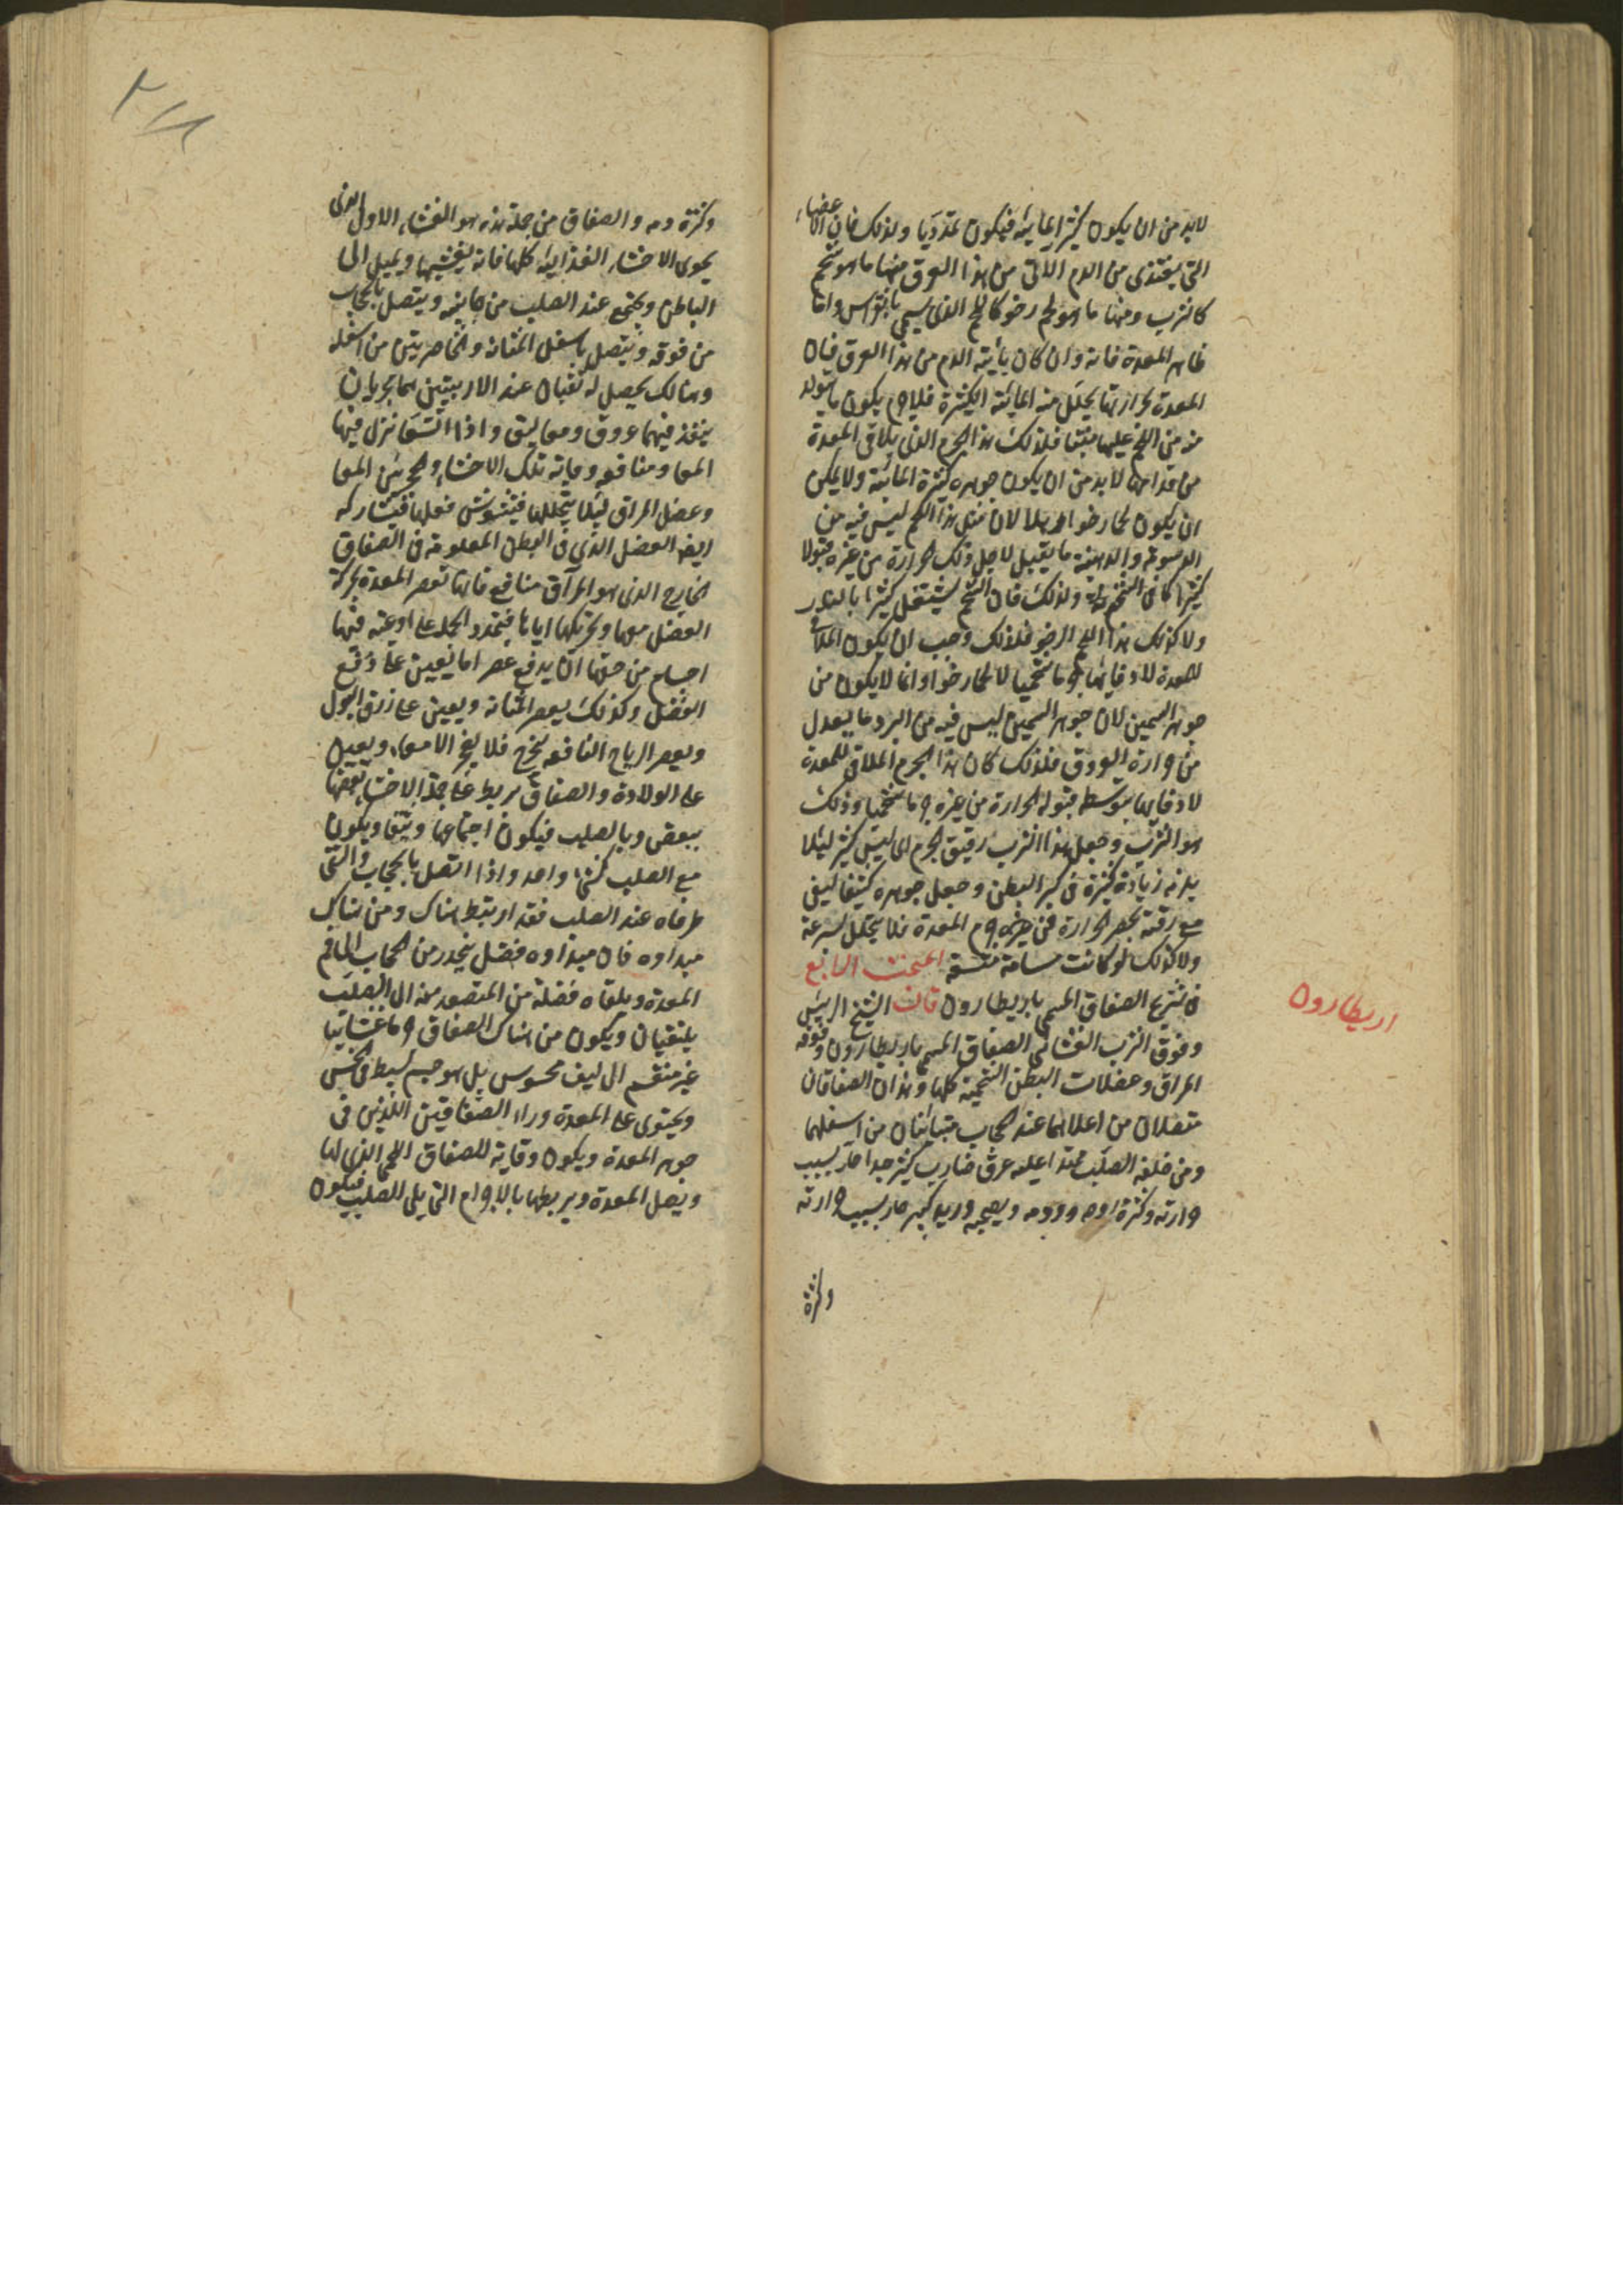 لابد من ان يكون كثير المائية فيكون لحمه رديا ولذلك فان الاعضاء
التى يغتذى من الدم الاتى من هذا العرق منها ما هو شحم
كالثرب ومنها ما هو لحم رخو كاللحم الذى يسمى بانقراس واما
ظاهر المعدة فانه وان كان يأتيه الدم من هذا العرق فان
المعدة لحرارتها يحلل منه المائية الكثيرة فلاجرم يكون ما يتولد
منه من اللحم عليها متينا فلذلك هذا الجرم الذى يلاقى المعدة
من قدامها لابد من ان يكون جوهره كثيرة المائية ولا يمكن
ان يكون لحما رخوا مهلهلا لان مثل هذا اللحم ليس فيه من
الدسومة والدهنية ما يقبل لاجل ذلك الحرارة من غيره قبولا
كثيرا كما فى الشحم ولذلك فان الشحم يشتعل كثيرا بالنار
ولا كذلك هذا اللحم الرخو فلذلك وجب ان يكون الملاقى
للمعدة لادفائها جرما شحميا لا لحما رخوا وانما لا يكون من
جوهر السمين لان جوهر السمين ليس فيه من البرد ما يعدل
من حرارة العروق فلذلك كان هذا الجرم الملاقى للمعدة
لادفايها بتوسط قبوله الحرارة من غيره جرما شحميا وذلك
هو الثرب وجعل هذا الثرب رقيق الجرم الى ليس كثير لئلا
يلزمه زيادة كثيرة فى كبر البطن وجعل جوهره كثيفا ليفى
مع رقته بحصر الحرارة فى جرم المعدة فلا يتحلل بسرعة
ولا كذلك لو كانت مسامه متسعة المبحث الرابع
فى تشريح الصفاق المسمى باريطارون قال الشيخ الرييس
وفوق الثرب الغشائى الصفاق المسمى باريطارون وفوقه
المراق وعضلات البطن الشحمية كلها وهذان الصفاقان
متصلان من اعلاهما عند الحجاب متباينان من اسفلهما
ومن خلفه الصلب ممتدا عليه عرق ضارب كبير جدا حار بسبب
حرارته وكثرة روحه ودمه ويصحبه وريد كبير حار بسبب حرارته
وكثرة
اريطارون
وكثرة دمه والصفاق من جملة هذه هو الغشاء الاول الذى
يحوى الاحشاء الغذايية كلها فانه يغشيها ويميل الى
الباطن ويجتمع عند الصلب من جانبيه ويتصل بالحجاب
من فوقه ويتصل باسفل المثانة والخاصرتين من اسفله
وهنالك يحصل له ثقبان عند الاربيتين هما مجريان
ينفذ فيهما عروق ومعاليق واذا اتسعا نزل فيها
المعا ومنافعه وقاية تلك الاحشاء والحجز بين المعا
وعضل المراق لئلا يتخللها فيشوش فعلها فيشاركه
ايضا العضل الذى فى البطن المعلومة فى الصفاق
الخارج الذى هو المراق منافع فانها تعصر المعدة بحركة
العضل معها وتحريكها اياها فيتمدد الجملة على اوعيته فيها
اجسام من حقها ان يدفع عصرا ما يعين على دفع
الفضل وكذلك يعصر المثانة ويعين على زرق البول
ويعصر الرياح النافخة ليخرج فلا يعجز الامعاء ويعين
على الولادة والصفاق يربط على جملة الاحشاء بعضها
ببعض وبالصلب فيكون اجتماعها وثيقا ويكون
مع الصلب كشئ واحد واذا اتصل بالحجاب والتقى
طرفاه عند الصلب فقد ارتبط هناك ومن هناك
مبداوه فان مبداوه فضل ينحدر من الحجاب الى فم
المعدة ويلقاه فضلة من المتصعد منه الى الصلب
يلتقيان ويكون من هناك الصفاق جرما غشائيا
غير منقسم الى ليف محسوس بل هو جسم بسيط فى الحس
ويحتوى على المعدة وراء الصفاقين اللذين فى
جوهر المعدة ويكون وقاية للصفاق اللحمى الذى لها
ويصل المعدة ويربطها بالاجرام التى يلى الصلب فيكون